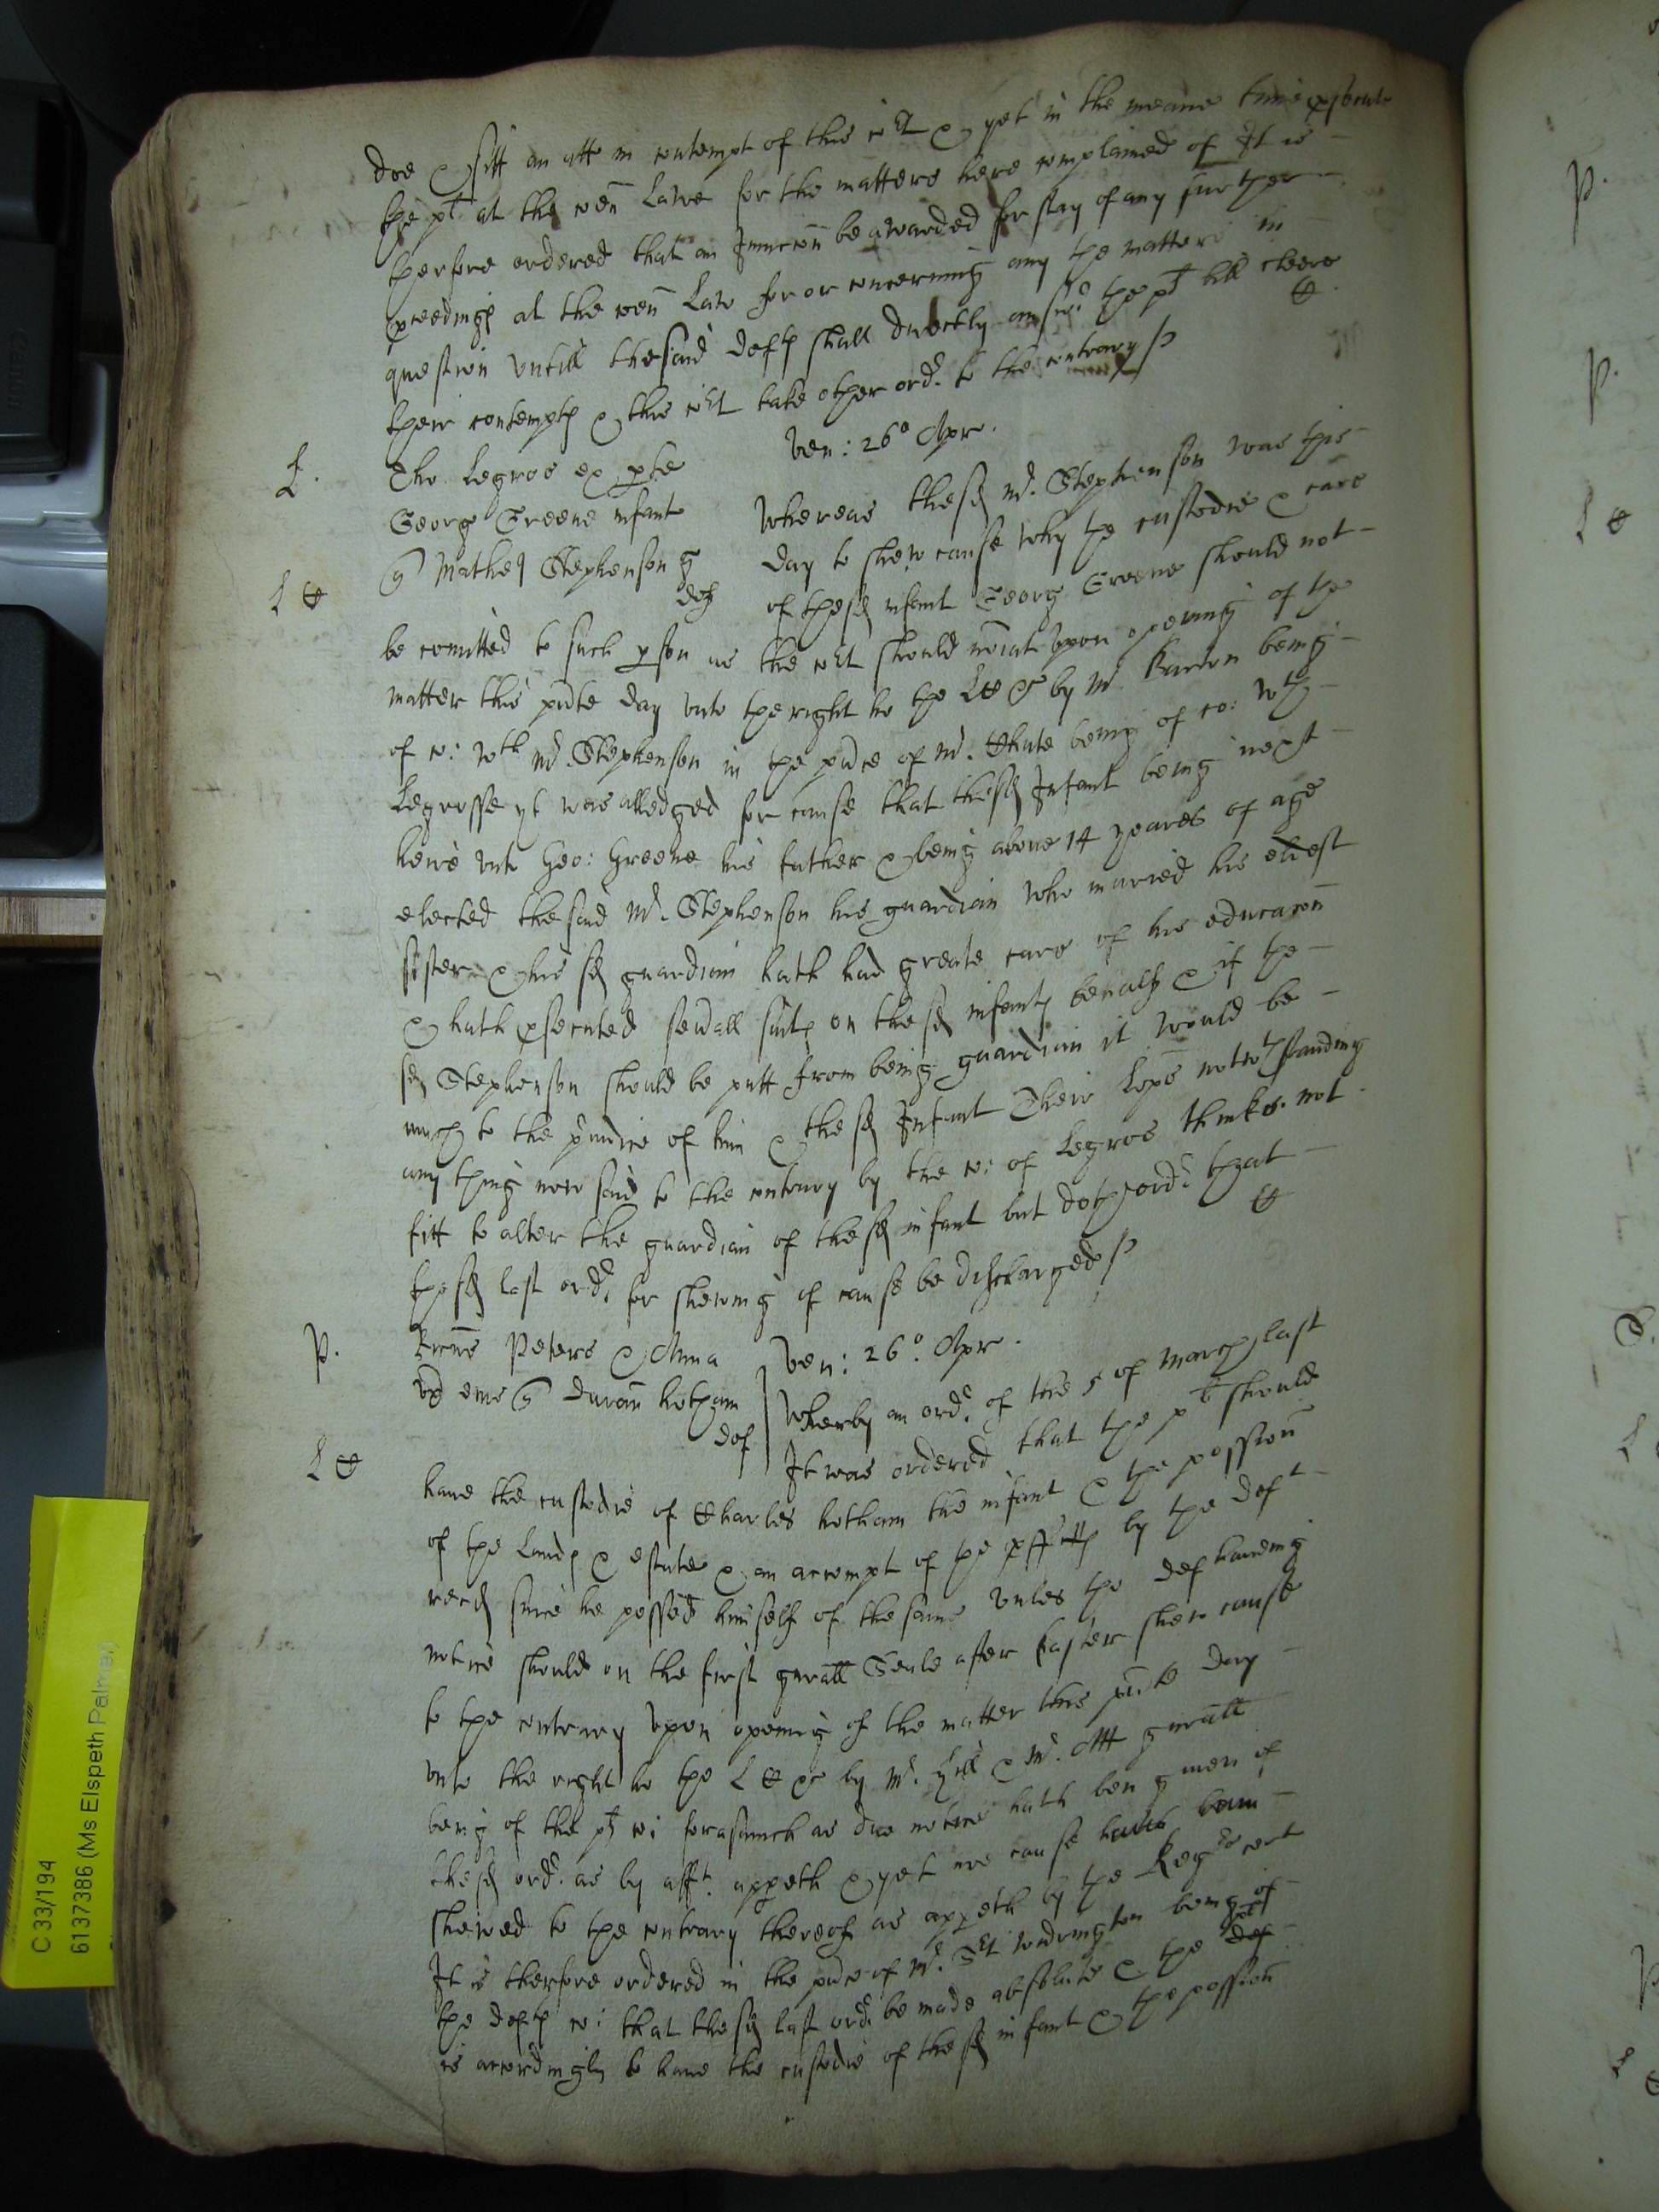 doe & sitt an att in contempt of this Co:rt & yet in the meane time psecute
the plt at the comon Lawe for the matters here complained of It is
therfore ordered that an Iniuncon be awarded for stay of any further
pceedings at the comon Law for or concerning any the matters in
question vntill the said defts shall directly answ:r the plts bill cleere
their contempts & this Co:rt take other ord:r to the contrary
Tho: Legros ex pte
Georg Greene infante
Mathew Stephenson g
def
L C
Ven: 26° Apr.
Whereas the sd Mr. Stephenson was this
day to shew cause why the custodie & care
of the sd infant Georg Greene should not
be comitted to such pson as the Co:rt should noiate vpon opening of the
matter this pnte day vnto the right ho the L C &c by Mr being
of co: wth Mr. Stephenson in the pnce of Mr. Chute being of co: wth
Legrosse yt was alledged for cause that the sd Infant being next
heire vnto Geo: Greene his father & being aboue 14 yeares of age
elected the said Mr. Stephenson his guardian who maried his eldest
sister & his sd guardian hath had greate care of his educacon
& hath psecuted seuall suits on the sd infants behalf & if the
sd Stephenson should be putt from being guardian it would be
much to the piudice of him & the sd Infant Their Lopps notwthstanding
any thing now said to the contrary by the co: of Legros thinkes not
fitt to alter the guardian of the sd infant but doth ord:r that
the sd last ord:r for shewing of cause be discharged
P.
Peters & Anna
vx eius Durant hotham
def
L C
Ven: 26°. Apr.
Wherby an ord:r of the 5 of March last
It was ordered that the plt should
haue the custodie of Charles hotham the infant & the possion
of the Lands & estate & an accompt of the pffitts by the deft
recd since he possed himself of the same vnles the def hauing
notice should on the first gnrall Seale after Easter shew cause
to the contrary vpon opening of the matter this pnte day
vnto the right ho the L C &c by Mr. Hill & Mr. Att gnrall
being of the plts co: forasmuch as due notice hath ben giuen of
the sd ord:r as by afft. appeth & yet noe cause hath been
shewed to the contrary thereof as appeth by the Regrs cert
It is therfore ordered in the pnce of Mr. Sert Widrington being of
the defts co: that the sd last ord:r be made absolute & the def plt
is accordingly to haue the custodie of the sd infant & the possion
C 33/194
6137386 (Ms Elspeth Palmer)